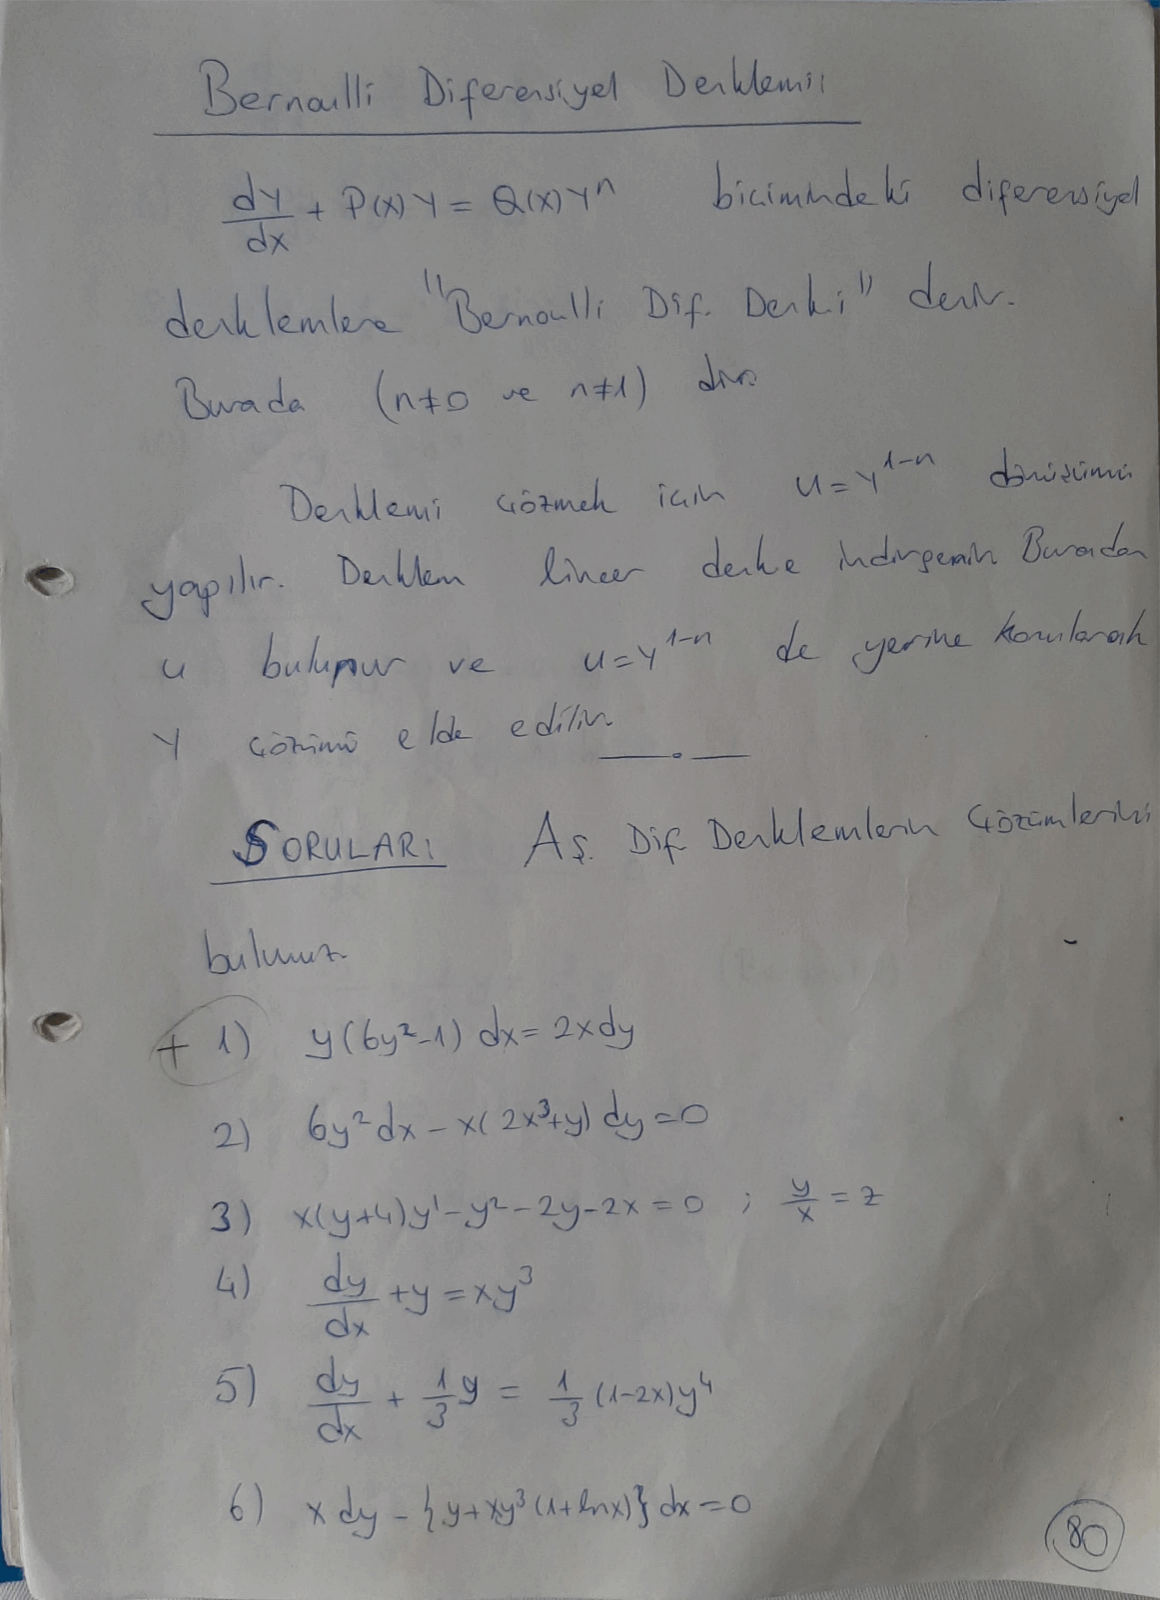 Bernoulli Diferensiyel Denklemi:
dy/dx + P(x)y = Q(x)yⁿ biçimindeki diferensiyel
denklemlere "Bernoulli Dif. Denk;" denir.
Burada (n≠0 ve n≠1) dir.
Denklemi çözmek için u=y^1-n dönüşümü
yapılır. Denklem lineer denke indirgenir. Buradan
u bulunur ve u=y^1-n de yerine konularak
y çözümü elde edilir.
SORULAR: Aş. Dif Denklemlerin çözümlerini
bulunuz.
+ 1) y(6y²-1) dx = 2xdy
2) 6y²dx - x(2x³+y) dy = 0
3) x(y+4)y' - y² - 2y - 2x = 0 ; y/x = z
4) dy/dx + y = xy³
5) dy/dx + 1/3 y = 1/3 (1-2x)y⁴
6) x dy - {y + xy³(1+lnx)} dx = 0
80